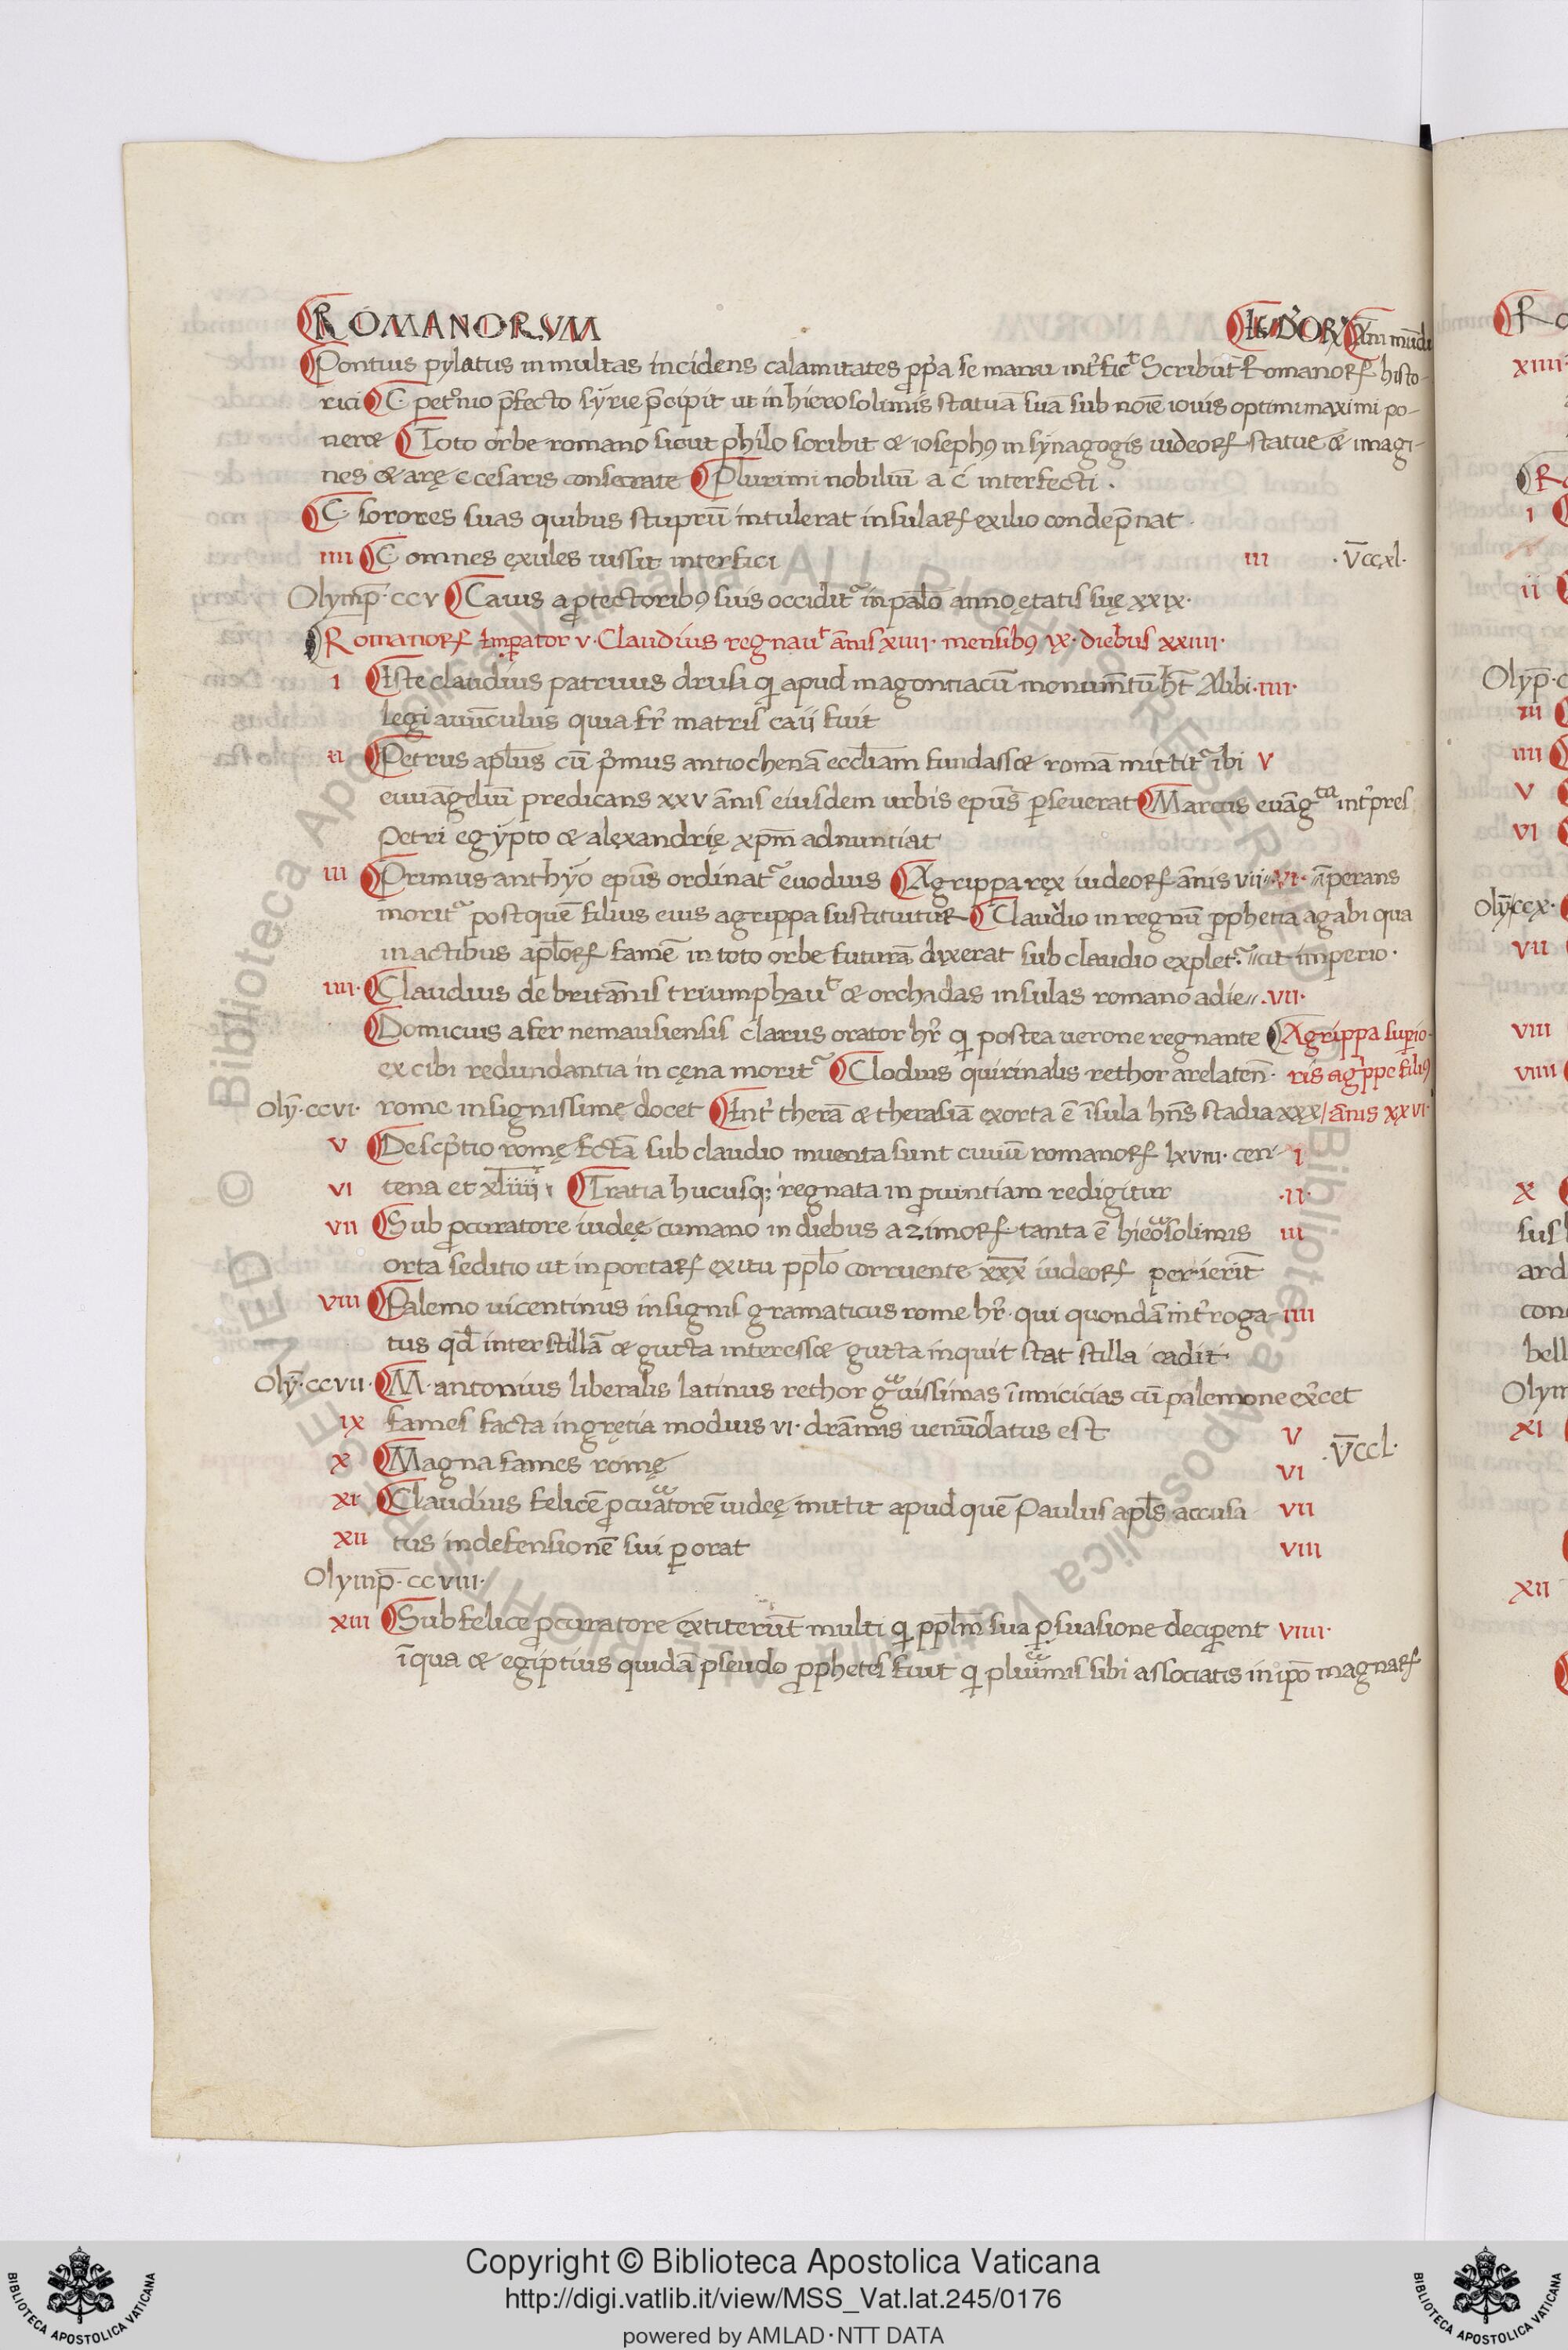 ROMANORVM IUDEORX Anni mūdi
Pontius pylatus in multas incidens calamitates ꝓpͥa se manu int᷑ficͭ Scribūt Romanorꝝ histo-
rici C petͦnio p̄fecto syrie p̄cipit ut in hierosolimis statuā suā sub noīe iouis optimi maximi po-
nere Toto orbe romano sicut philo scribit & iosephꝰ in synagogis iudeorꝝ statue & imagi-
nes & arę C cesaris consecrate Plurimi nobiliū a C interfecti .
C sorores suas quibus stuprū intulerat insularꝝ exilio condēpnat .
IIII C omnes exules iussit interfici III . V̄CCXL.
Olymp̄. CCV Caius a ꝓtectoribꝰ suis occidit᷑ in palō anno ętatis suę XXIX.
Romanorꝝ Imꝑator V. Claudius regnauͭ ānis XIIII. mensibꝰ IX. diebus XXIIII.
I Iste claudius patruus drusi qͥ apud magontiacū monum̄tū h̄t Alibi. IIII.
legi auūculus quia fr̄ matris caii fuit
II Petrus apl̄us cū pͥmus antiochenā eccl̄iam fundass& romā mittit᷑ ibi V
euuāgeliū predicans XXV ānis eiusdem urbis ep̄us ꝑseuerat Marcus euāgͭᵃ int᷑pres
Petri egypto & alexandrię xp̄m adnuntiat
III Primus anthyo ep̄us ordinat᷑ euodius Agrippa rex iudeorꝝ ānis VII VI. īperans
morit᷑ post quē filius eius agrippa sustituitur Claudio in regnū ꝓphetia agabi qua
in actibus apl̄orꝝ famē in toto orbe futurā dixerat sub claudio explet᷑. cit imperio.
IIII. Claudius de britānis triumphauͭ & orchadas insulas romano adie .VII.
Domicius afer nemausiensis clarus orator hr̄ qͥ postea nerone regnante Agrippa suꝑio-
ex cibi redundantia in cęna morit᷑ Clodius quirinalis rethor arelatēn. ris agͥppe filiꝰ
Olȳ. CCVI. rome insignissime docet Int᷑ therā & therasiā exorta ē īsula hn̄s stadia XXX / ānis XXVI.
V Descͥptio romę fctā sub claudio inuenta sunt ciuiū romanorꝝ LXVIIII. cen- I
VI tena et XLIIII Tratia hucusqꝫ regnata in ꝓuintiam redigitur .II.
VII Sub ꝓcuratore iudeę cumano in diebus azimorꝝ tanta ē hieͣosolimis III
orta seditio ut in portarꝝ exitu ppl̄o corruente XXX̄ iudeorꝝ perierīt
VIII Palemo uicentinus insignis gramaticus rome hr̄. qui quondā int᷑roga- IIII
tus qd̄ inter stillā & gutta interess& gutta inquit stat stilla cadit.
Olȳ. CCVII. M. antonius liberalis latinus rethor gͣuissimas īimicicias cū palemone ex᷑cet
IX fames facta in gretia modius VI. drāmis uenūdatus est V .V̄CCL.
X Magna fames romę VI
XI Claudius felicē ꝓcuͣatorē iudeę mittit apud quē Paulus apl̄s accusa VII
XII tus in defensionē sui ꝑorat VIII
Olymp̄. CCVIII.
XIII Sub felice ꝓcuratore extiterūt multi qͥ ppl̄m sua ꝑsuasione deciꝑent VIIII.
ī qua & egiptius quidā pseudo ꝓphetes fuit qͥ pluͥimis sibi associatis in ipō magnarꝝ
XIIII
I
II
Olyp̄.
III
IIII
V
VI
Olȳ CCX.
VII
VIII
VIIII
X
ard
bell
Olym
XI
XII
© Biblioteca Apostolica Vaticana ALL RIGHTS RESERVED
© Biblioteca Apostolica Vaticana ALL RIGHTS RESERVED
Copyright © Biblioteca Apostolica Vaticana
http://digi.vatlib.it/view/MSS_Vat.lat.245/0176
powered by AMLAD·NTT DATA
BIBLIOTECA APOSTOLICA VATICANA
BIBLIOTECA APOSTOLICA VATICANA